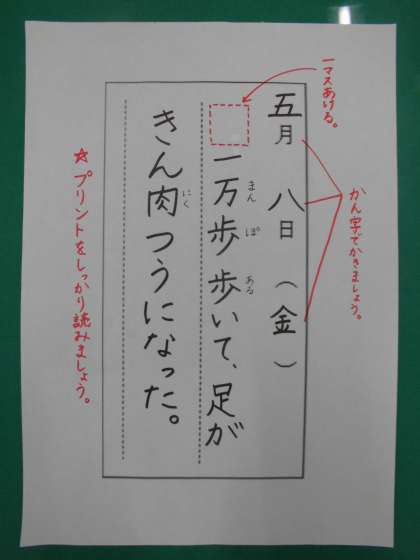 一マスあける。
五月八日（金）
かん字でかきましょう。
一万歩歩いて、足が
まん
ぽ
ある
きん肉つうになった。
にく
☆プリントをしっかり読みましょう。